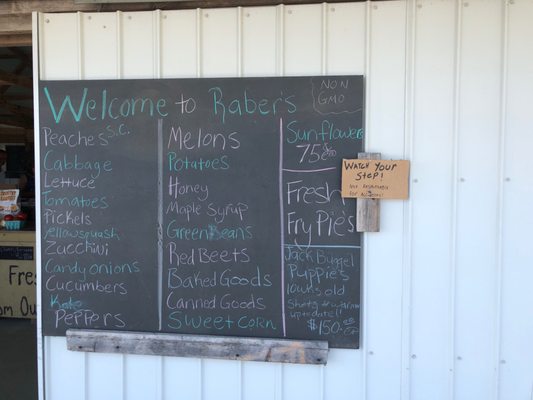 Welcome to Raber's
NON
GMO
Peaches S.C.
Cabbage
Lettuce
Tomatoes
Pickels
Yellow squash
Zucchini
Candy onions
Cucumbers
Peppers
Melons
Potatoes
Honey
Maple Syrup
Green Beans
Red Beets
Baked Goods
Canned Goods
Sweet Corn
Sunflower
75¢
Fresh
Fry Pie's
Jack
Puppie's
10wks old
Shots & worm
up to date!!
$150.00
WATCH YOUR
STEP!
NOT RESPONSIBLE
FOR
Fres
om Ou